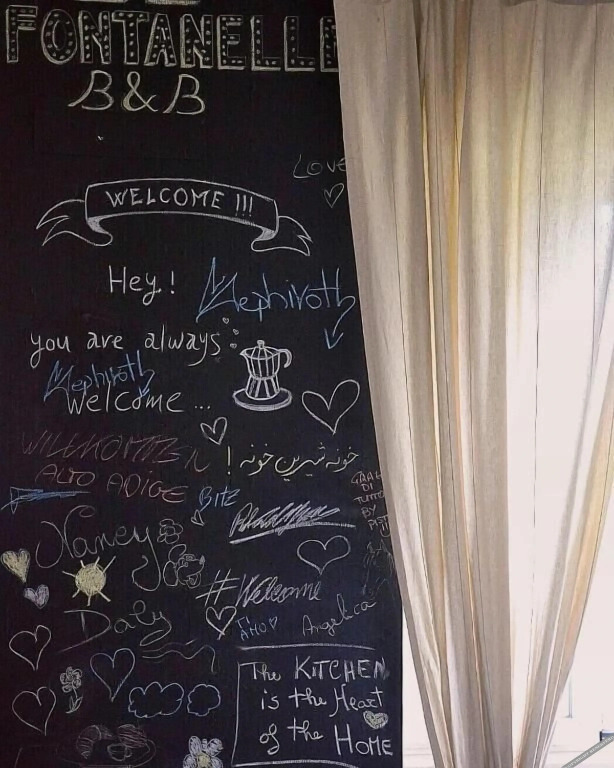 FONTANELLE
B&B
LOVE
WELCOME !!!
Hey!
Mephiroth
you are always
Mephiroth
welcome ...
WILLKOMMEN
خونه شیرین خونه !
ALTO ADIGE
BITZ
DI
TUTTO
BY
Nancy
#Welcome
Daly
TI
AMO
Angelica
The KITCHEN
is the Heart
of the HOME